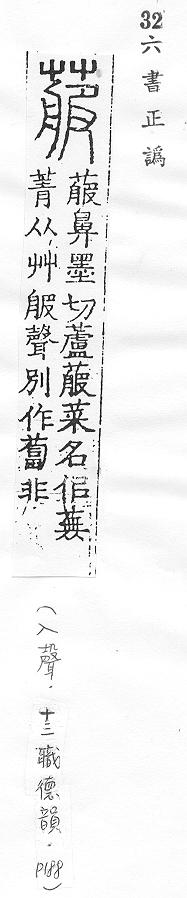 32六書正譌
菔
菔鼻墨切蘆菔菜名佀蕪
菁从艸服聲別作蔔非
(入聲．十三職德韻．P188)